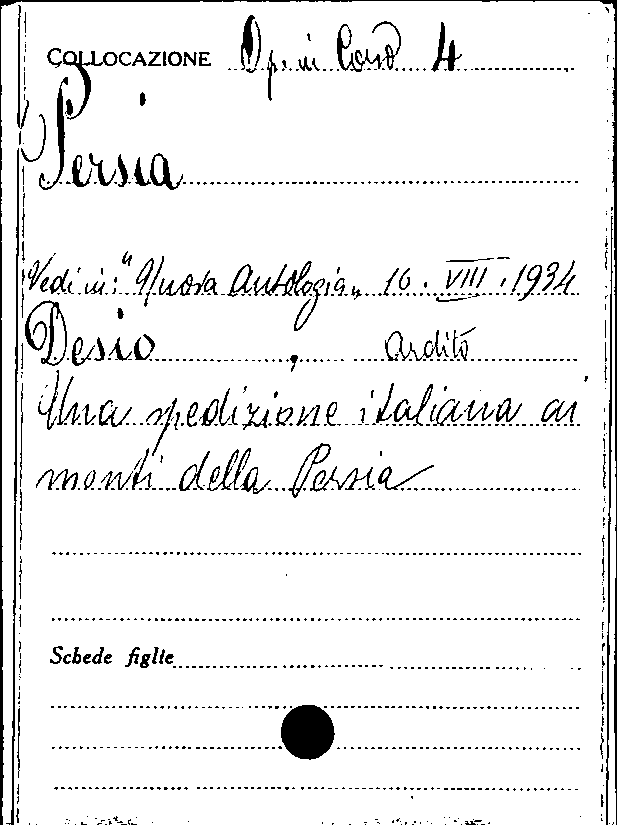 COLLOCAZIONE Op. in Corso 4
Persia
Vedi in: "Nuova Antologia„ 16. VIII. 1934
Desio, Ardito
Una spedizione italiana ai
monti della Persia
Schede figlie